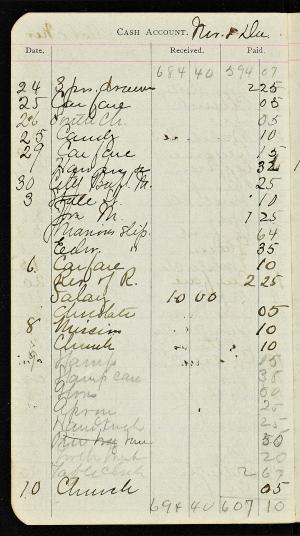 CASH ACCOUNT. Nov. & Dec.
Date. Received. Paid.
684 40 594 07
24 3 prs. drawers 2 25
25 Carfare 05
26 Ch. 05
25 Candy 10
29 Carfare 15
32
30 City Bap. M. 25
3 State S. 10
For. M. 1 25
Marion's slip. 64
Edw. " 35
6 Carfare 10
Rev. of R. 2 25
Salary 10 00
Chocolate 05
8 Mission 10
Church 10
9 Stamps 15
Lamp can 38
50
Apron 25
25
50
Tooth Brush 20
Table Cloth 2 67
10 Church 05
694 40 607 10